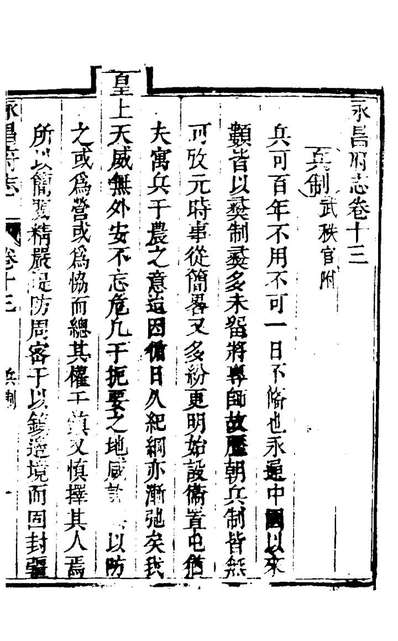 永昌府志卷十三
兵制 武秩官附
兵可百年不用不可一日不備也永通中國以來
類皆以彝制彝多未留將專師故歷朝兵制皆無
可攷元時事從簡畧又多紛更明始設衛置屯猶
夫寓兵于農之意迨因循日久紀綱亦漸弛矣我
皇上天威無外安不忘危凡于扼要之地咸 以防
之或為營或為協而總其權于鎮又慎擇其人焉
所以簡 精嚴 防周密于以鎮邊境而固封疆
永昌府志 卷十三 兵制 一